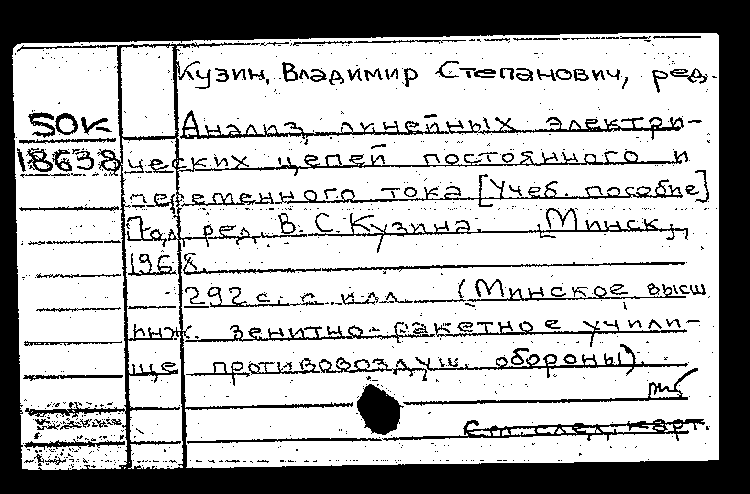 Кузин, Владимир Степанович, ред.
50К
Анализ линейных электри-
18638
ческих цепей постоянного и
переменного тока [Учеб. пособие]
Под ред. В. С. Кузина. [Минск],
1968.
292 с. с илл (Минское высш
инж. зенитно-ракетное учили-
ще противовоздуш. обороны).
См. след. карт.